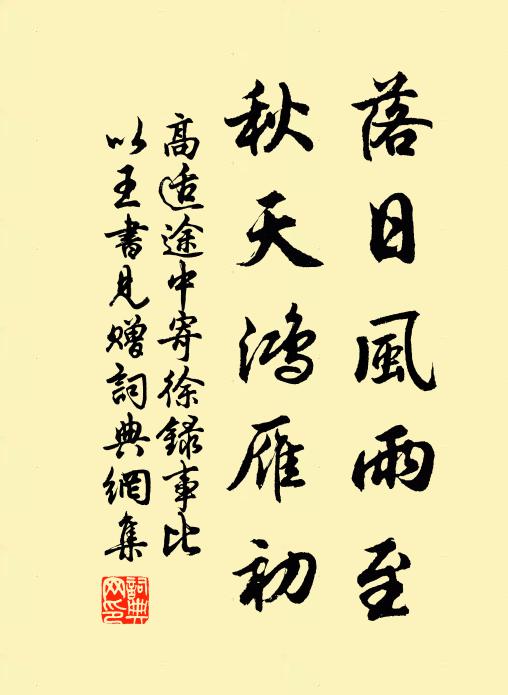 落日風雨至
秋天鴻雁初
高适途中寄徐錄事比
以王書見贈詞典網集
詞典網印